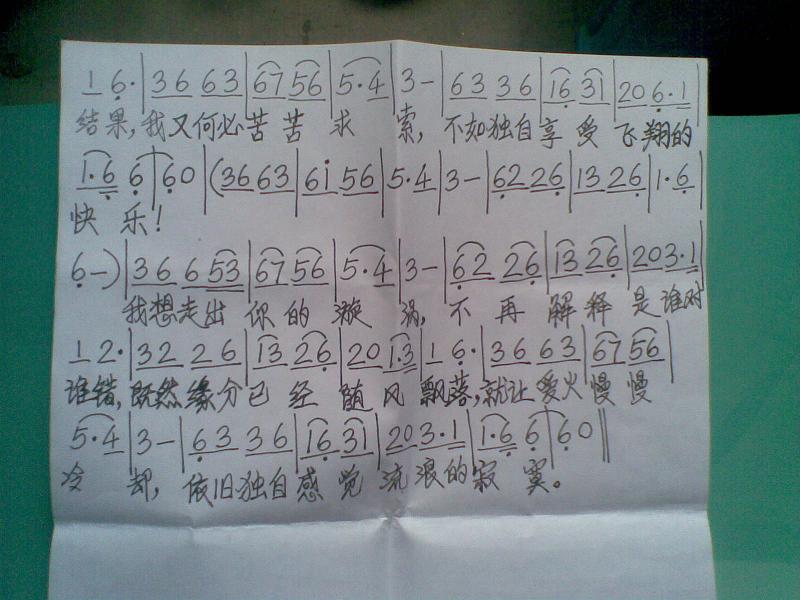 1 6·|36 63|67 56|5·4|3-|63 36|16 31|20 6·1|
结果,我又何必苦苦求索,不如独自享受飞翔的
1·6 6|60|(36 63|6i 56|5·4|3-|62 26|13 26|1·6|
快乐!
6-)|36 653|67 56|5·4|3-|62 26|13 26|203·1|
我想走出你的漩涡,不再解释是谁对
1 2·|32 26|13 26|20 1·3|1 6·|36 63|67 56|
谁错,既然缘分已经随风飘落,就让爱火慢慢
5·4|3-|63 36|16 31|203·1|1·6 6|60‖
冷却,依旧独自感觉流浪的寂寞。